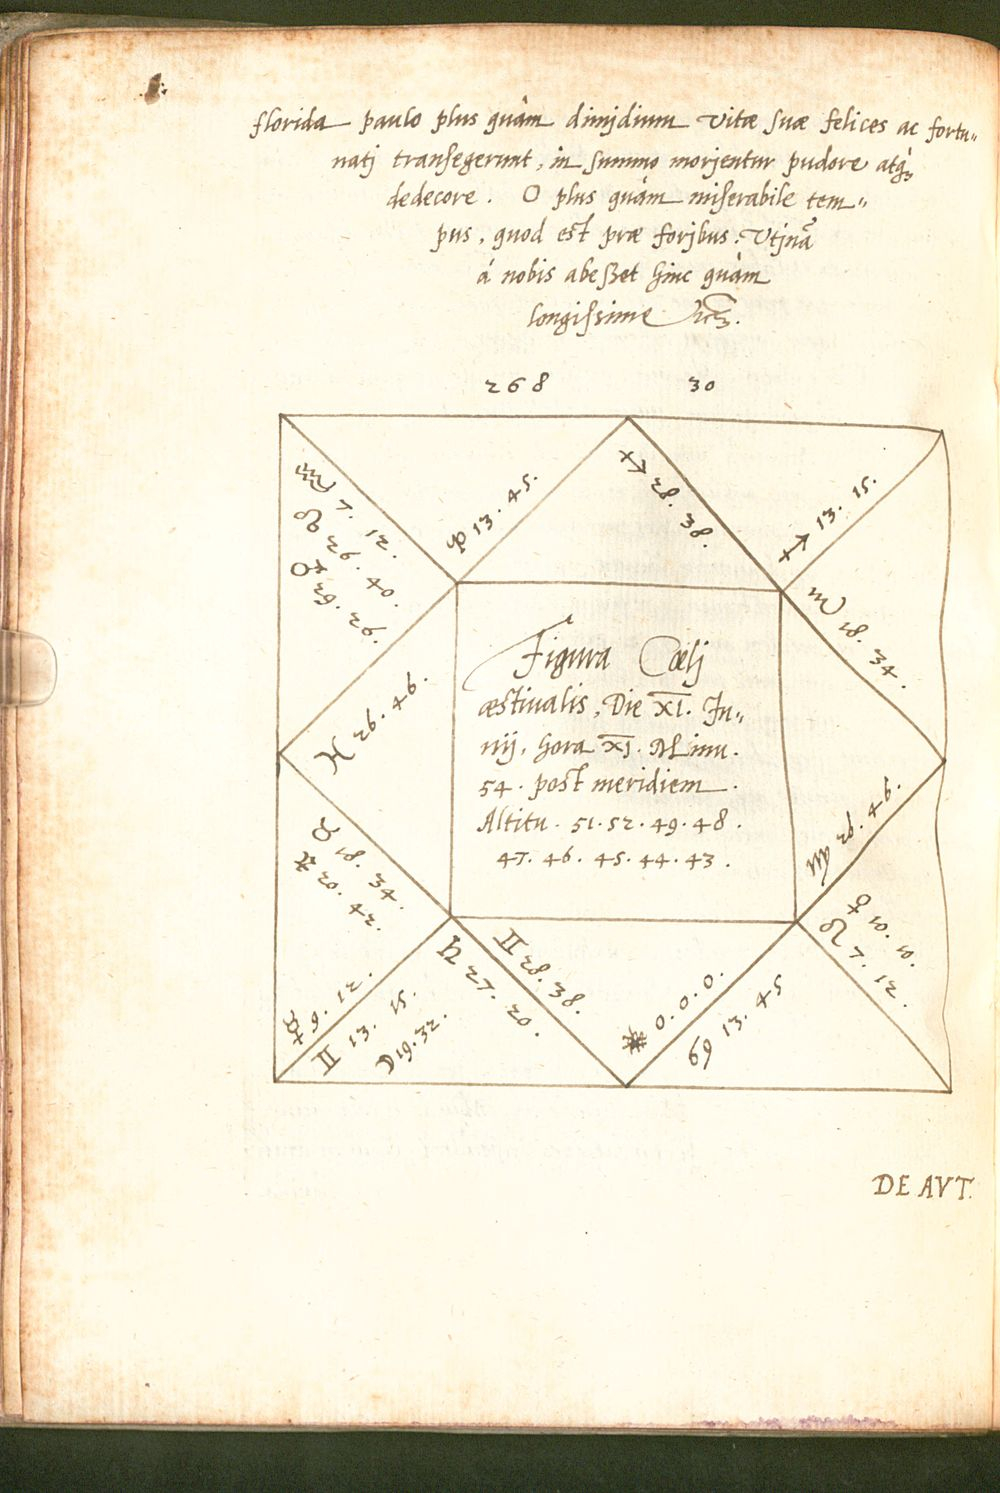 florida paulo plus quàm dimjdium vitæ suæ felices ac fortu„
natj transegerunt, in summo morjentur pudore atq;
dedecore. O plus quàm miserabile tem„
pus, quod est præ forjbus: Vtjnā
á nobis abeßet hinc quàm
longissime
268 30
♒ 7. 12.
☊ 26. 40.
♂ 29. 26.
♑ 13. 45.
♐ 28. 38.
♐ 13. 15.
♏ 18. 34.
♓ 26. 46.
Figura Cœlj
æstiualis, Die XI. Iu„
nij, hora XI. Minu.
54. post meridiem.
Altitu. 51. 52. 49. 48.
47. 46. 45. 44. 43.
♍ 26. 46.
♉ 18. 34.
♃ 20. 42.
♀ 10. 10.
♌ 7. 12.
☿ 9. 12.
♊ 13. 15.
☽ 19. 32.
♄ 27. 20.
♊ 28. 38.
0. 0. 0.
♋ 13. 45
DE AVT.